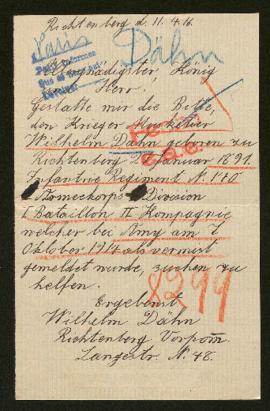 Richtenberg d. 11.4.16.
Dähn
Allergnädigster König
Herr!
Gestatte mir die Bitte,
den Krieger Musketier
Wilhelm Dähn geboren zu
Richtenberg Januar 1891.
Infantrie Regiment N. 170
Division
I Bataillon II Kompagnie
welcher bei Amy am 7
Oktober 1914 als vermist
gemeldet wurde, suchen zu
helfen.
Ergebenst
8299
Wilhelm Dähn
Richtenberg Vorpom.
Langestr. N. 48.